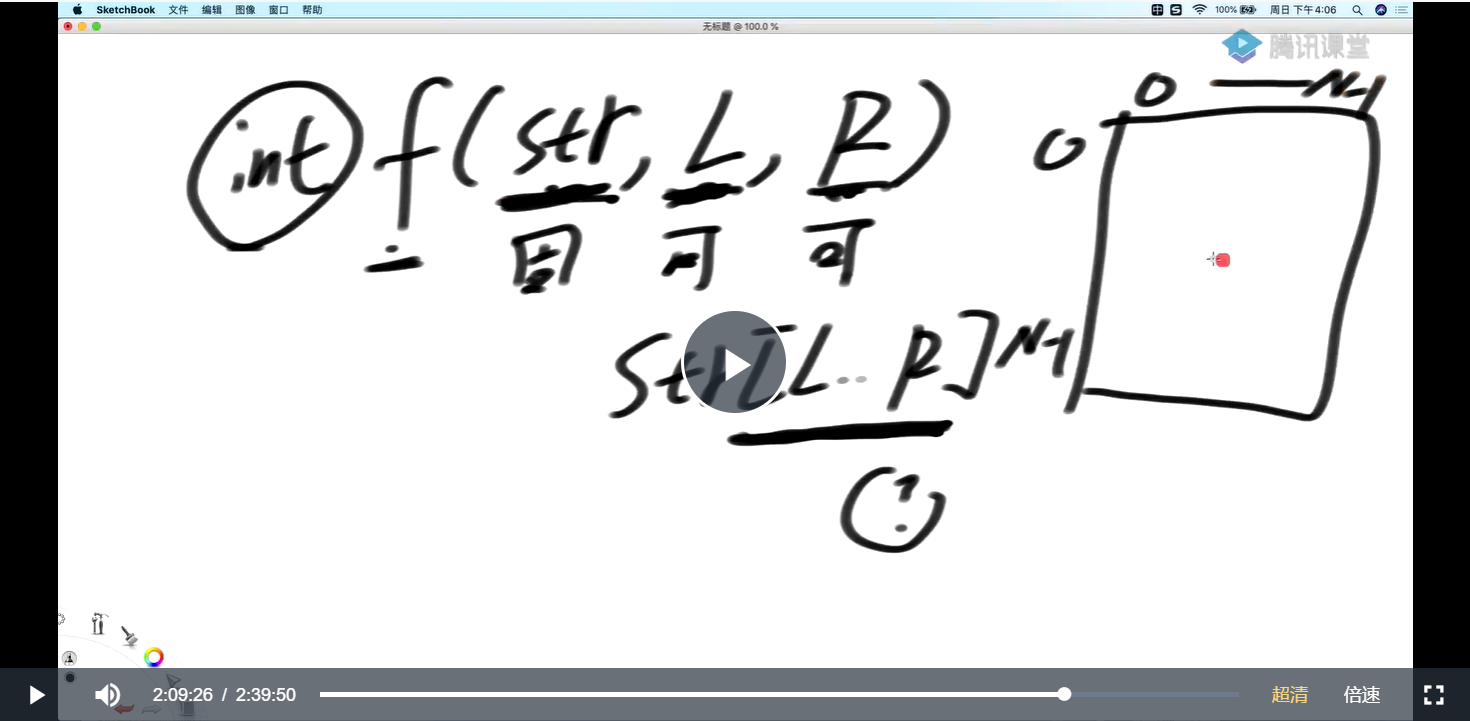 SketchBook 文件 编辑 图像 窗口 帮助 100% 周日 下午4:06
无标题 @ 100.0 %
腾讯课堂
int f(str, L, R)
固 可 可
0 — N-1
0
str[L.. R]
N-1
?
2:09:26 / 2:39:50 超清 倍速